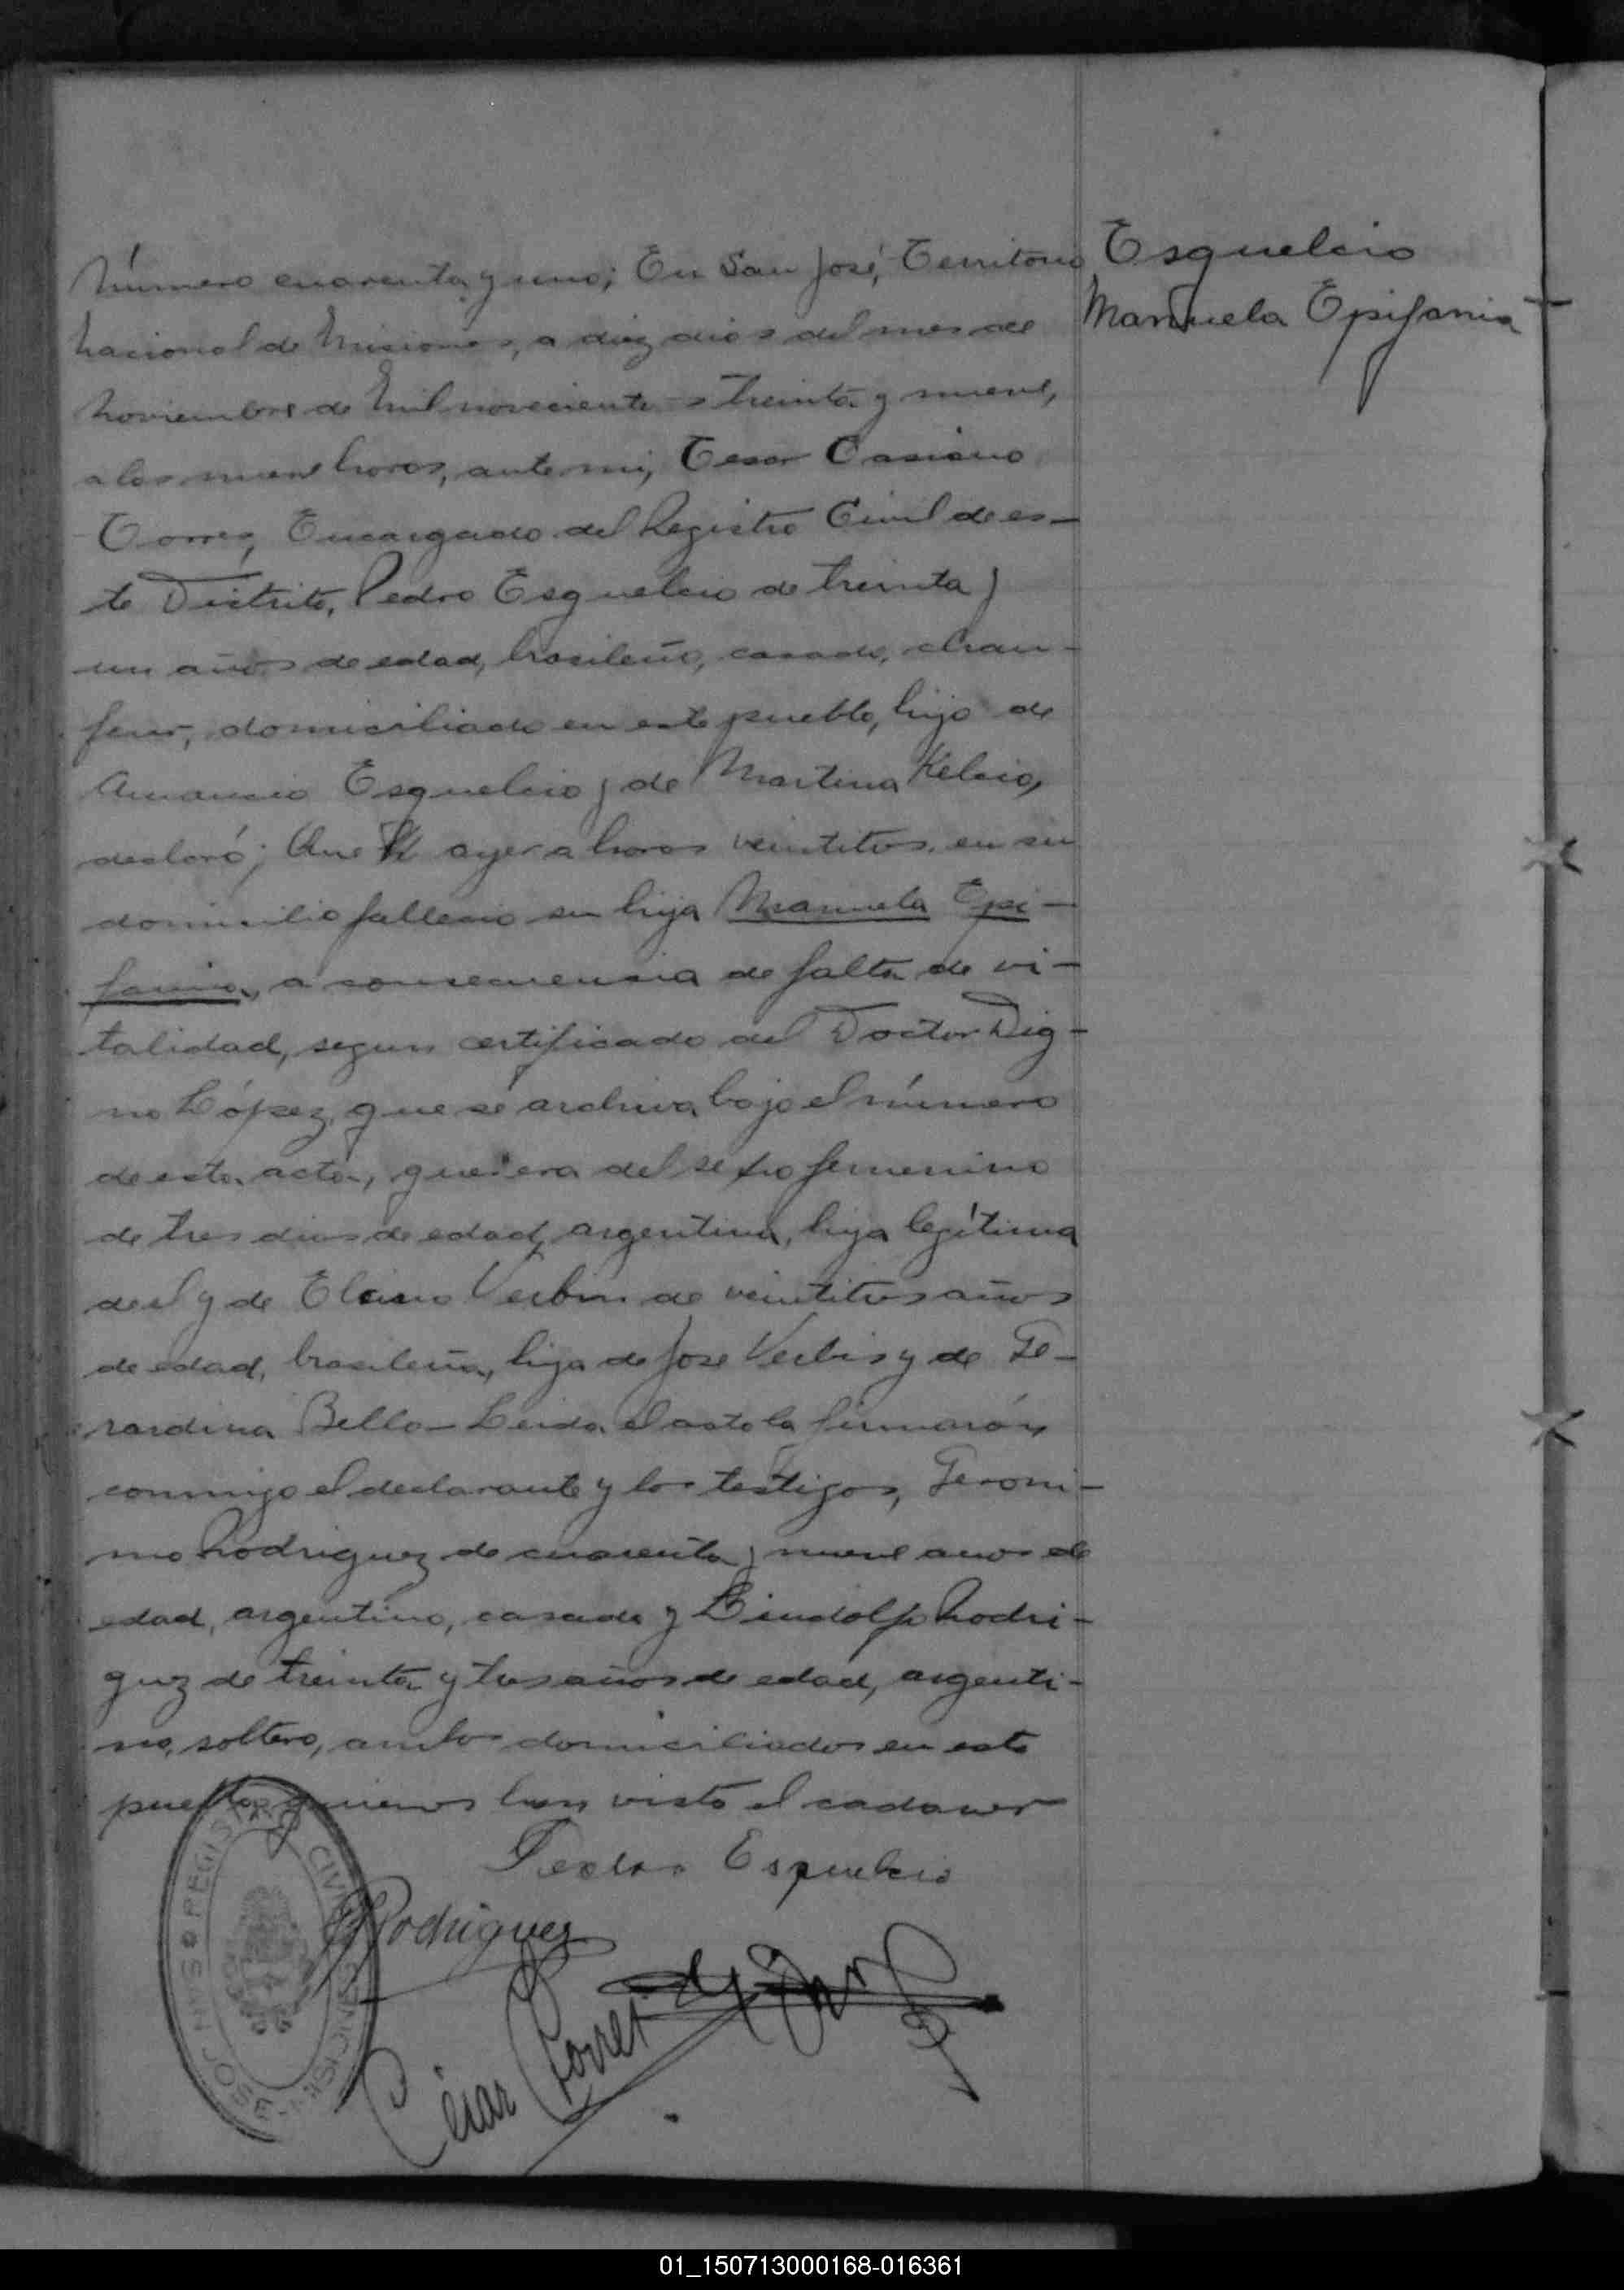 Esquelcio
Manuela Epifania
Número cuarenta y uno; En San José, Territorio
Nacional de Misiones, a diez dias del mes de
Noviembre de Mil novecientos treinta y nueve,
a las nueve horas, ante mi, Cesar Casiano
Torres, Encargado del Registro Civil de es-
te Distrito, Pedro Esquelcio de treinta y
un años de edad, brasileño, casado, chau-
feur, domiciliado en este pueblo, hijo de
Amancio Esquelcio y de Martina Kelcio,
declaró; Que ayer a horas veintitres, en su
domicilio fallecio su hija Manuela Epi-
fania, a consecuencia de falta de vi-
talidad, segun certificado del Doctor Dig-
no López, que se archiva bajo el número
de esta acta, que era del sexo femenino
de tres dias de edad, argentina, hija legítima
de el y de Verbin de veintitres años
de edad, brasileña, hija de Jose Verbin y de Ge-
rardina Bello - Leida el acta la firmarón
conmigo el declarante y los testigos, Geroni-
mo Rodriguez de cuarenta y nueve años de
edad, argentino, casado y Lindolfo Rodri-
guez de treinta y tres años de edad, argenti-
no, soltero, ambos domiciliados en este
pueblo quienes han visto el cadaver
Pedro Esquelcio
Rodriguez
César Torres
REGISTRO CIVIL SAN JOSE - MISIONES
01_150713000168-016361